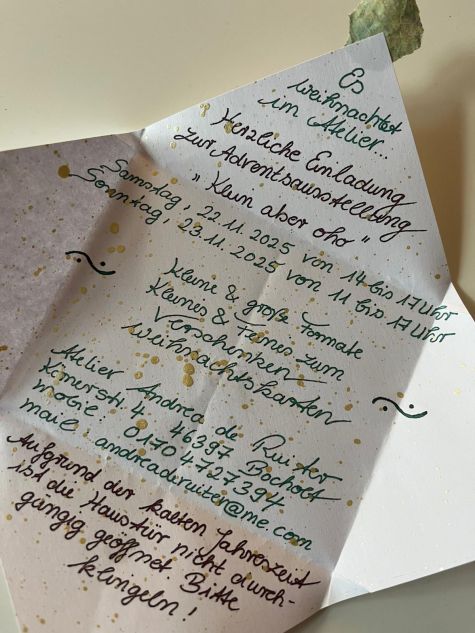 Es
weihnachtet
im Atelier...
Herzliche Einladung
zur Adventsausstellung
"Klein aber oho"
Samstag, 22.11.2025 von 14 bis 17 Uhr
Sonntag, 23.11.2025 von 11 bis 17 Uhr
Kleine & große Formate
Kleines & Feines zum
Verschenken
Weihnachtskarten
Atelier Andrea de Ruiter
4 46397 Bocholt
mobil 0170 4727394
mail: andreaderuiter@me.com
Aufgrund der kalten Jahreszeit
ist die Haustür nicht durch-
gängig geöffnet. Bitte
klingeln!